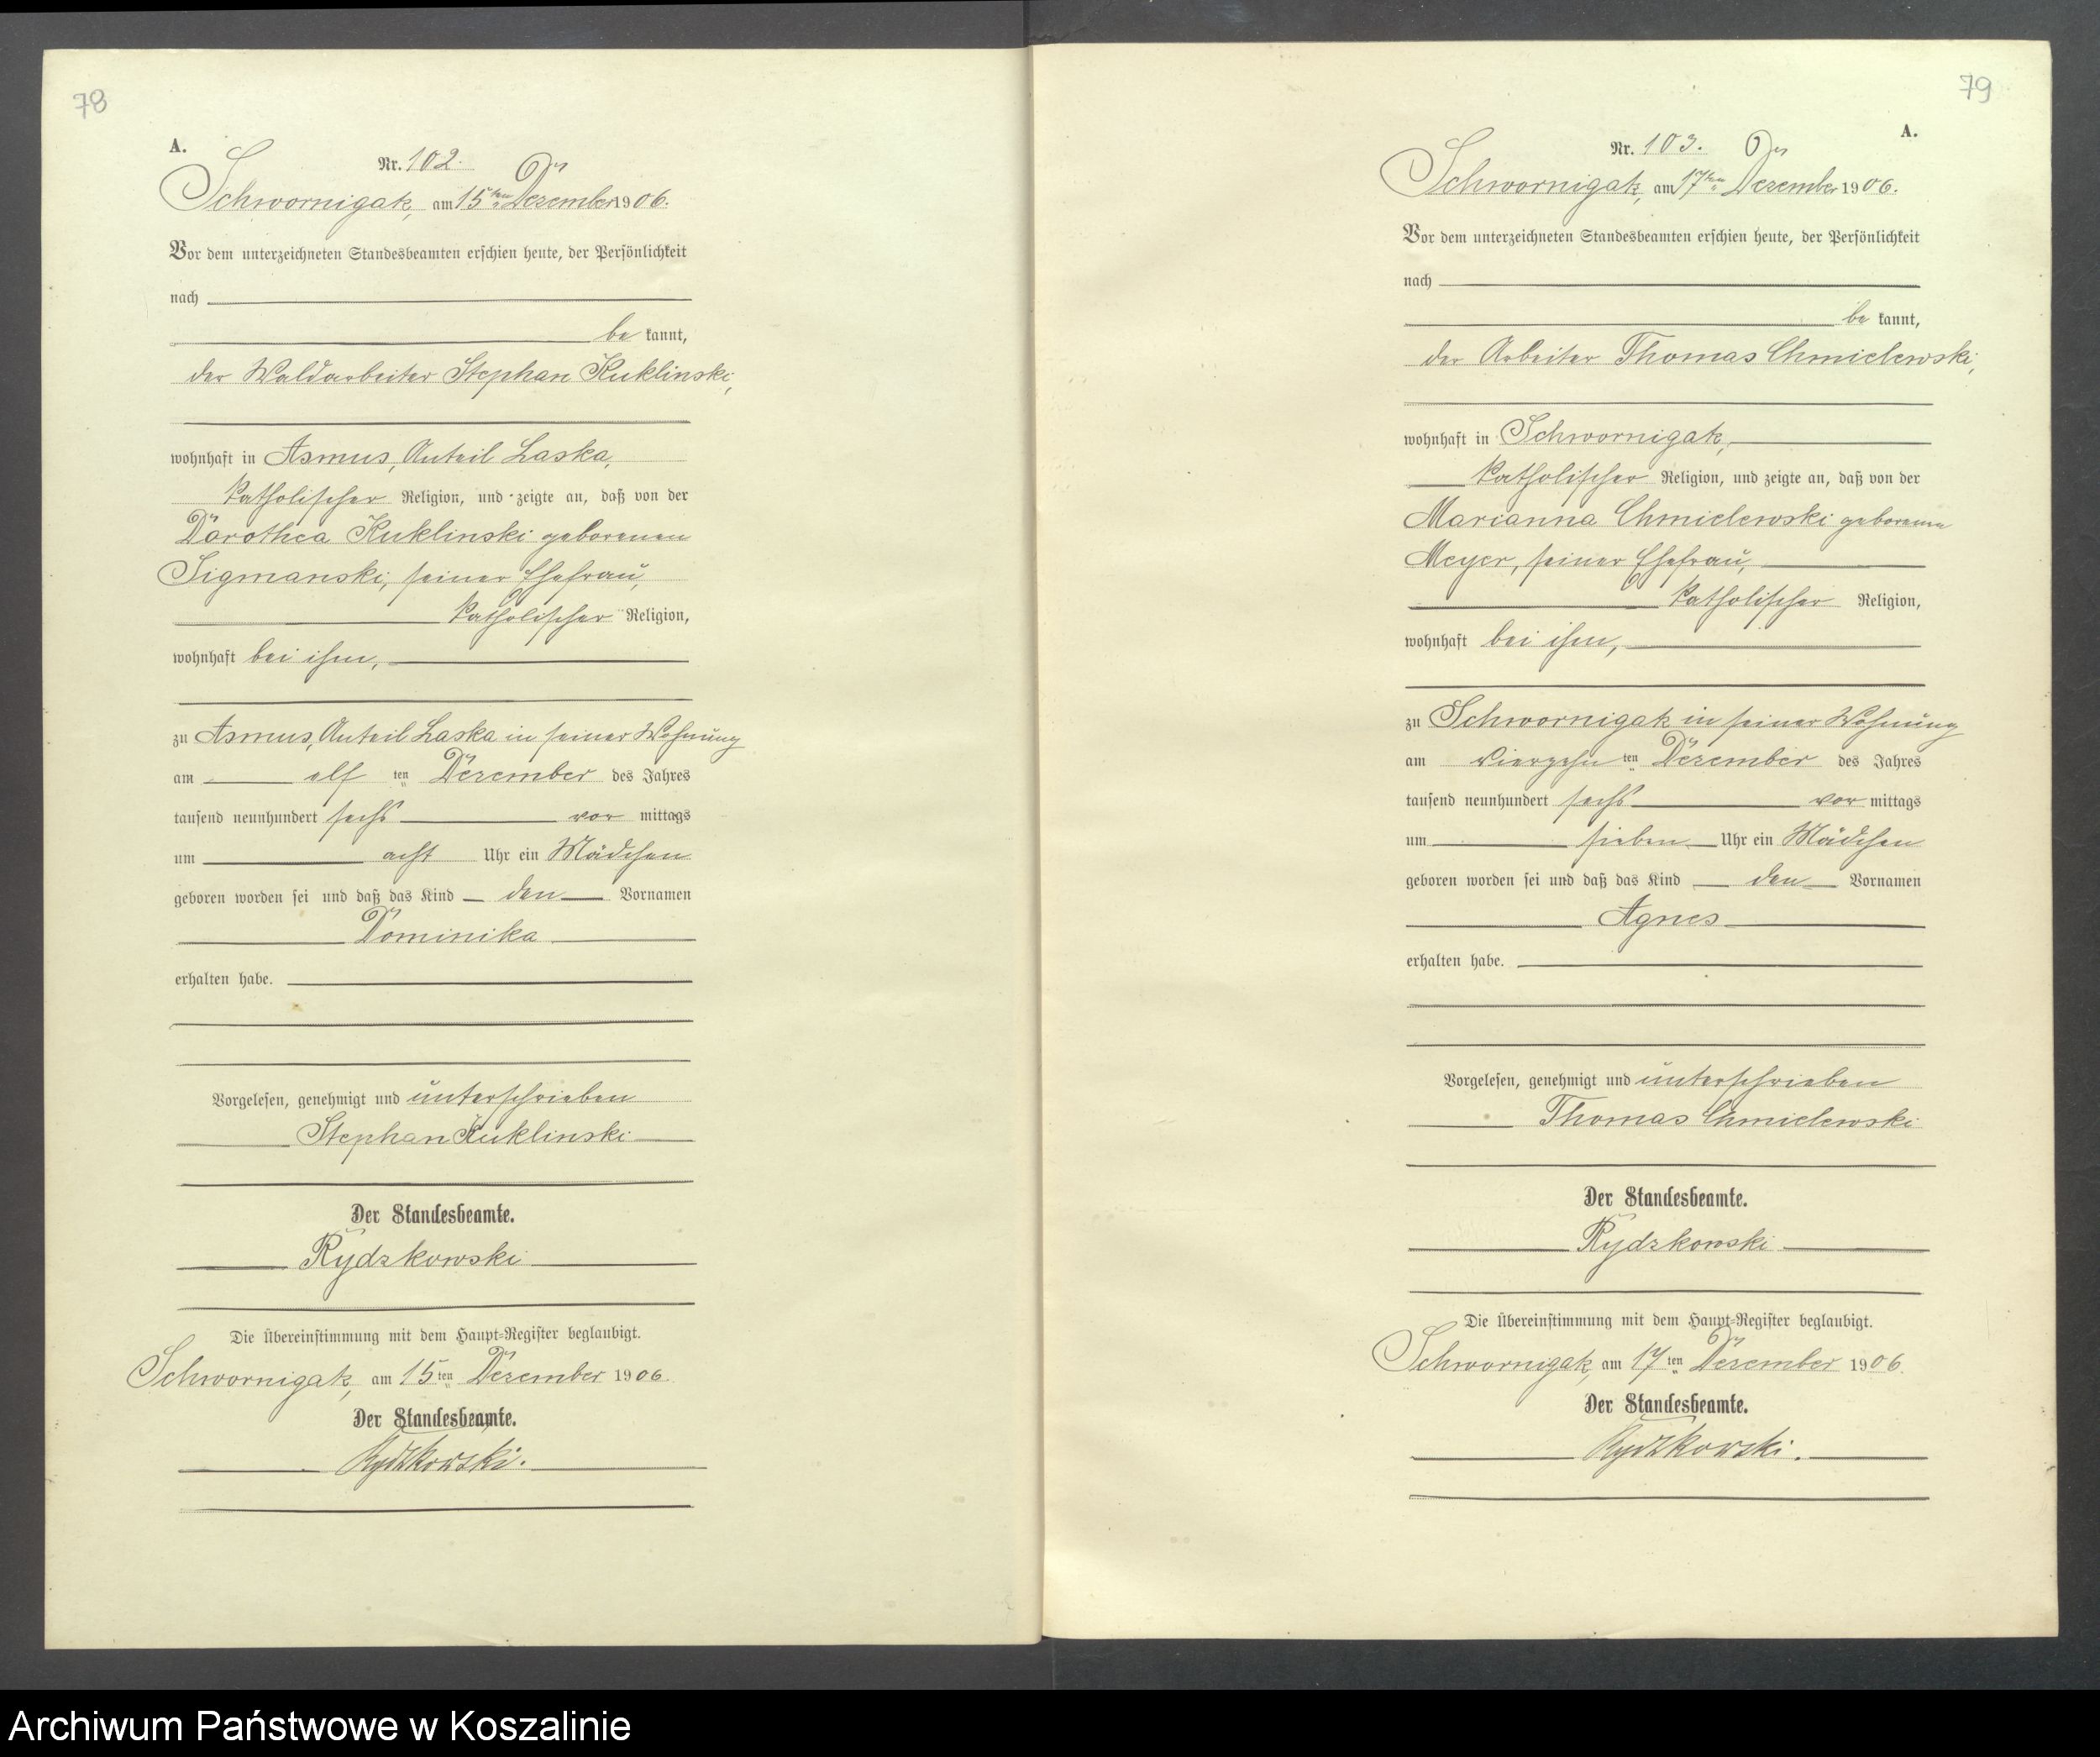 78
A.
Nr. 102.
Schwornigatz, am 15ten Dezember 1906.
Vor dem unterzeichneten Standesbeamten erschien heute, der Persönlichkeit
nach
be kannt,
der Waldarbeiter Stephan Kuklinski,
wohnhaft in Asmus, Anteil Laska,
katholischer Religion, und zeigte an, daß von der
Dorothea Kuklinski geborenen
Sigmanski, seiner Ehefrau,
katholischer Religion,
wohnhaft bei ihm,
zu Asmus, Anteil Laska in seiner Wohnung
am elf ten Dezember des Jahres
tausend neunhundert sechs vor mittags
um acht Uhr ein Mädchen
geboren worden sei und daß das Kind den Vornamen
Dominika
erhalten habe.
Vorgelesen, genehmigt und unterschrieben
Stephan Kuklinski
Der Standesbeamte.
Rydzkowski
Die Übereinstimmung mit dem Haupt-Register beglaubigt.
Schwornigatz, am 15ten Dezember 1906.
Der Standesbeamte.
Rydzkowski.
79
A.
Nr. 103.
Schwornigatz, am 17ten Dezember 1906.
Vor dem unterzeichneten Standesbeamten erschien heute, der Persönlichkeit
nach
be kannt,
der Arbeiter Thomas Chmielewski,
wohnhaft in Schwornigatz,
katholischer Religion, und zeigte an, daß von der
Marianna Chmielewski geborenen
Meyer, seiner Ehefrau,
katholischer Religion,
wohnhaft bei ihm,
zu Schwornigatz in seiner Wohnung
am vierzehn ten Dezember des Jahres
tausend neunhundert sechs vor mittags
um sieben Uhr ein Mädchen
geboren worden sei und daß das Kind den Vornamen
Agnes
erhalten habe.
Vorgelesen, genehmigt und unterschrieben
Thomas Chmielewski
Der Standesbeamte.
Rydzkowski
Die Übereinstimmung mit dem Haupt-Register beglaubigt.
Schwornigatz, am 17ten Dezember 1906.
Der Standesbeamte.
Rydzkowski.
Archiwum Państwowe w Koszalinie